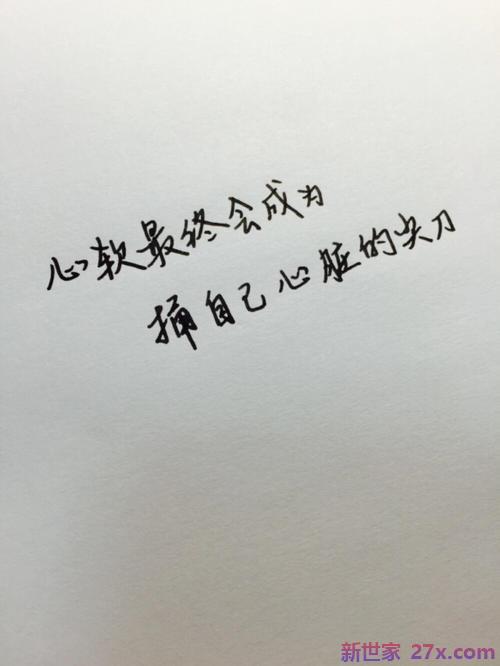 心软最终会成为
捅自己心脏的尖刀
新世家 27x.com